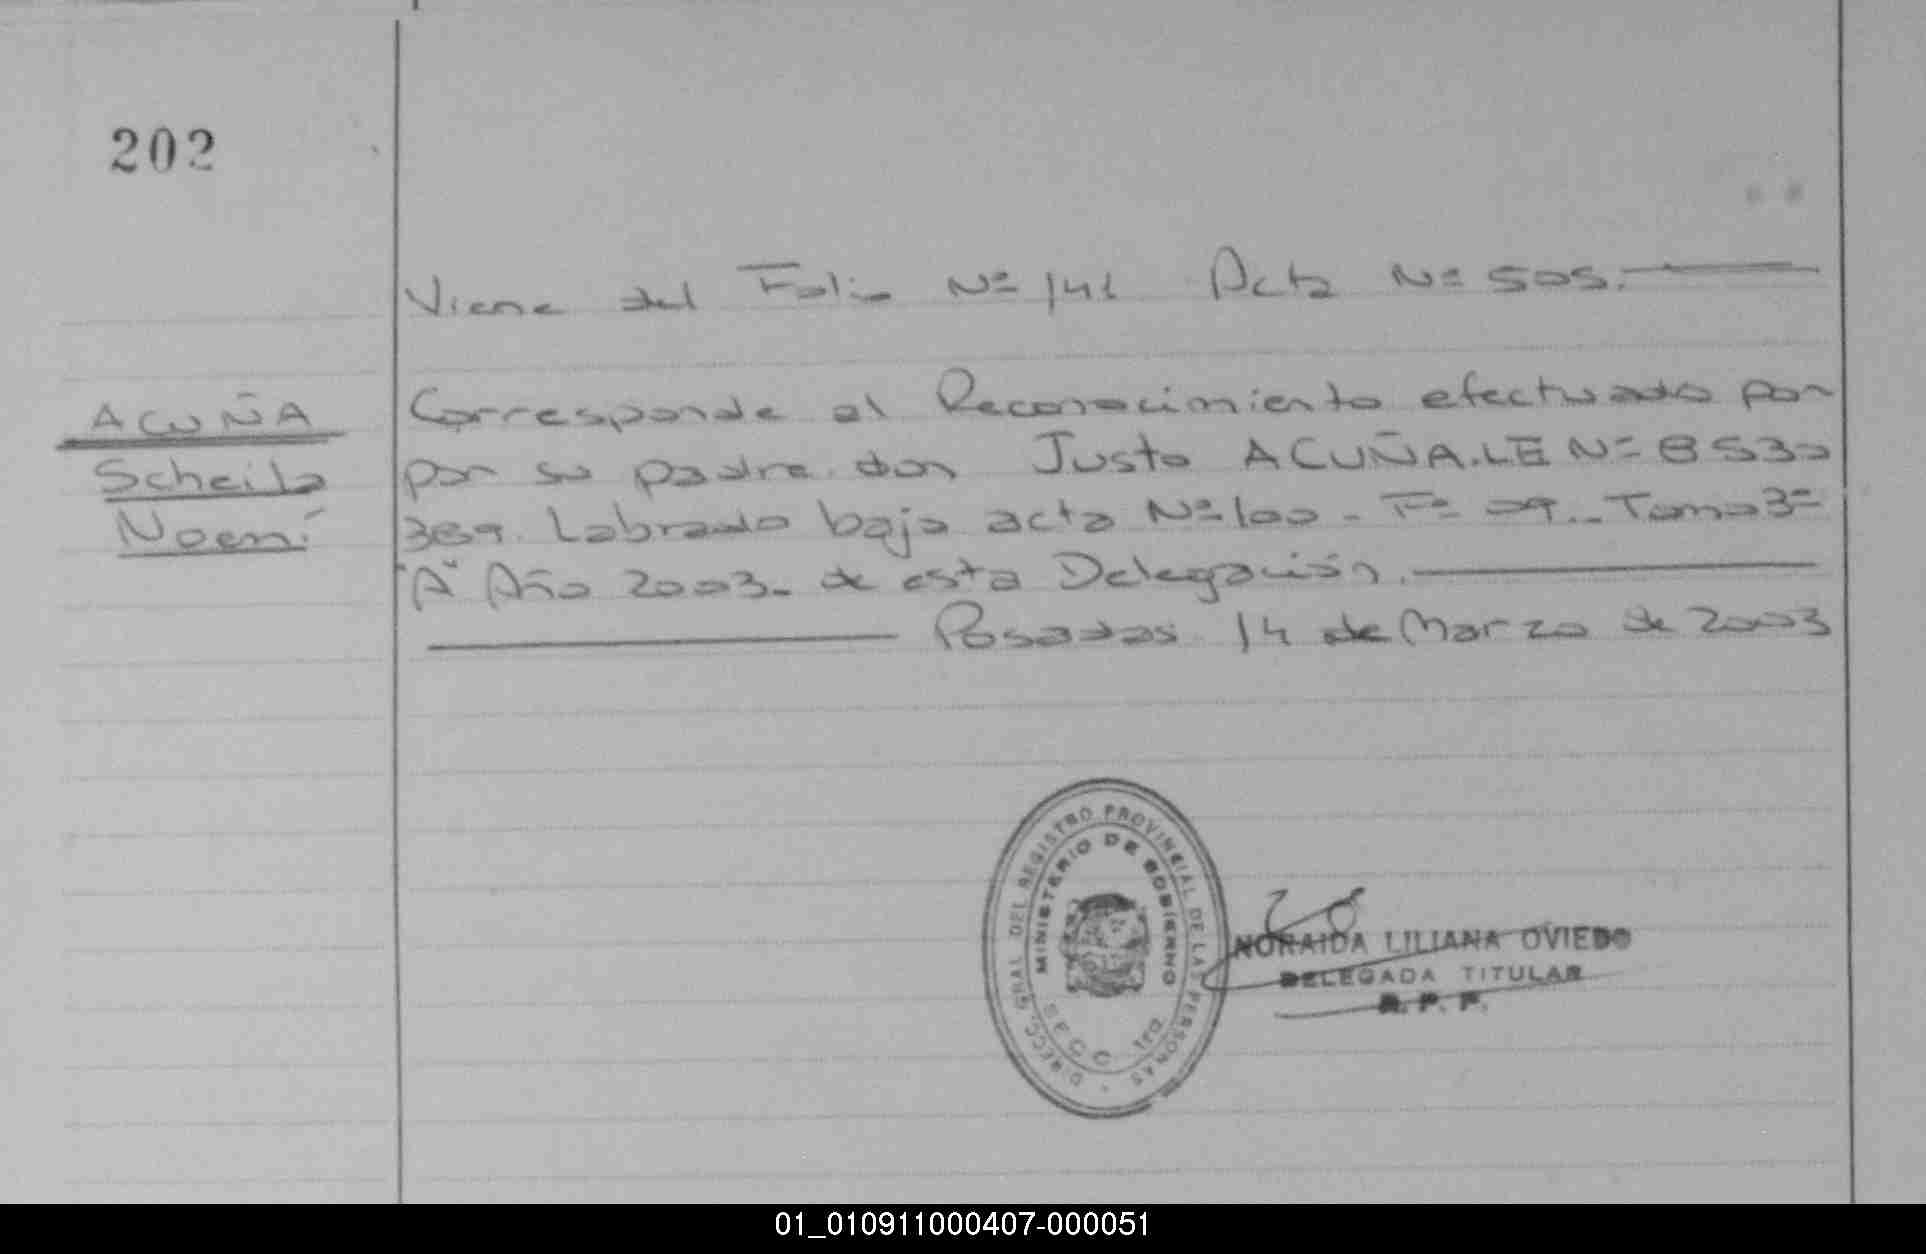 202
Viene del Folio Nº 141 Acta Nº 505.
ACUÑA
Scheila
Noemí
Corresponde al Reconocimiento efectuado por
por su padre don Justo ACUÑA. LE Nº 8530
369. Labrado bajo acta Nº 100 - Fº 09.. Tomo 3º
"A" Año 2003. de esta Delegación.
Posadas 14 de Marzo de 2003
DIRECC. GRAL. DEL REGISTRO PROVINCIAL DE LAS PERSONAS
MINISTERIO DE GOBIERNO
SECC. 1ra.
NORAIDA LILIANA OVIEDO
DELEGADA TITULAR
R. P. P.
01_010911000407-000051